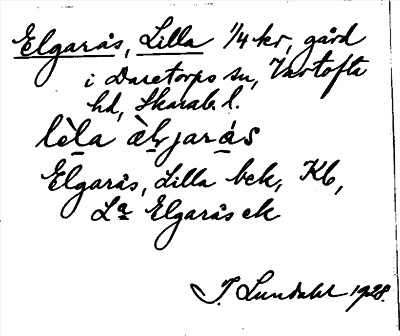 Elgarås, Lilla 1/4 kr, gård
i Daretorps sn, Vartofta
hd, Skarab. l.
Elgarås, Lilla bek, Kb,
La Elgarås ek
I. Lundahl 1928.